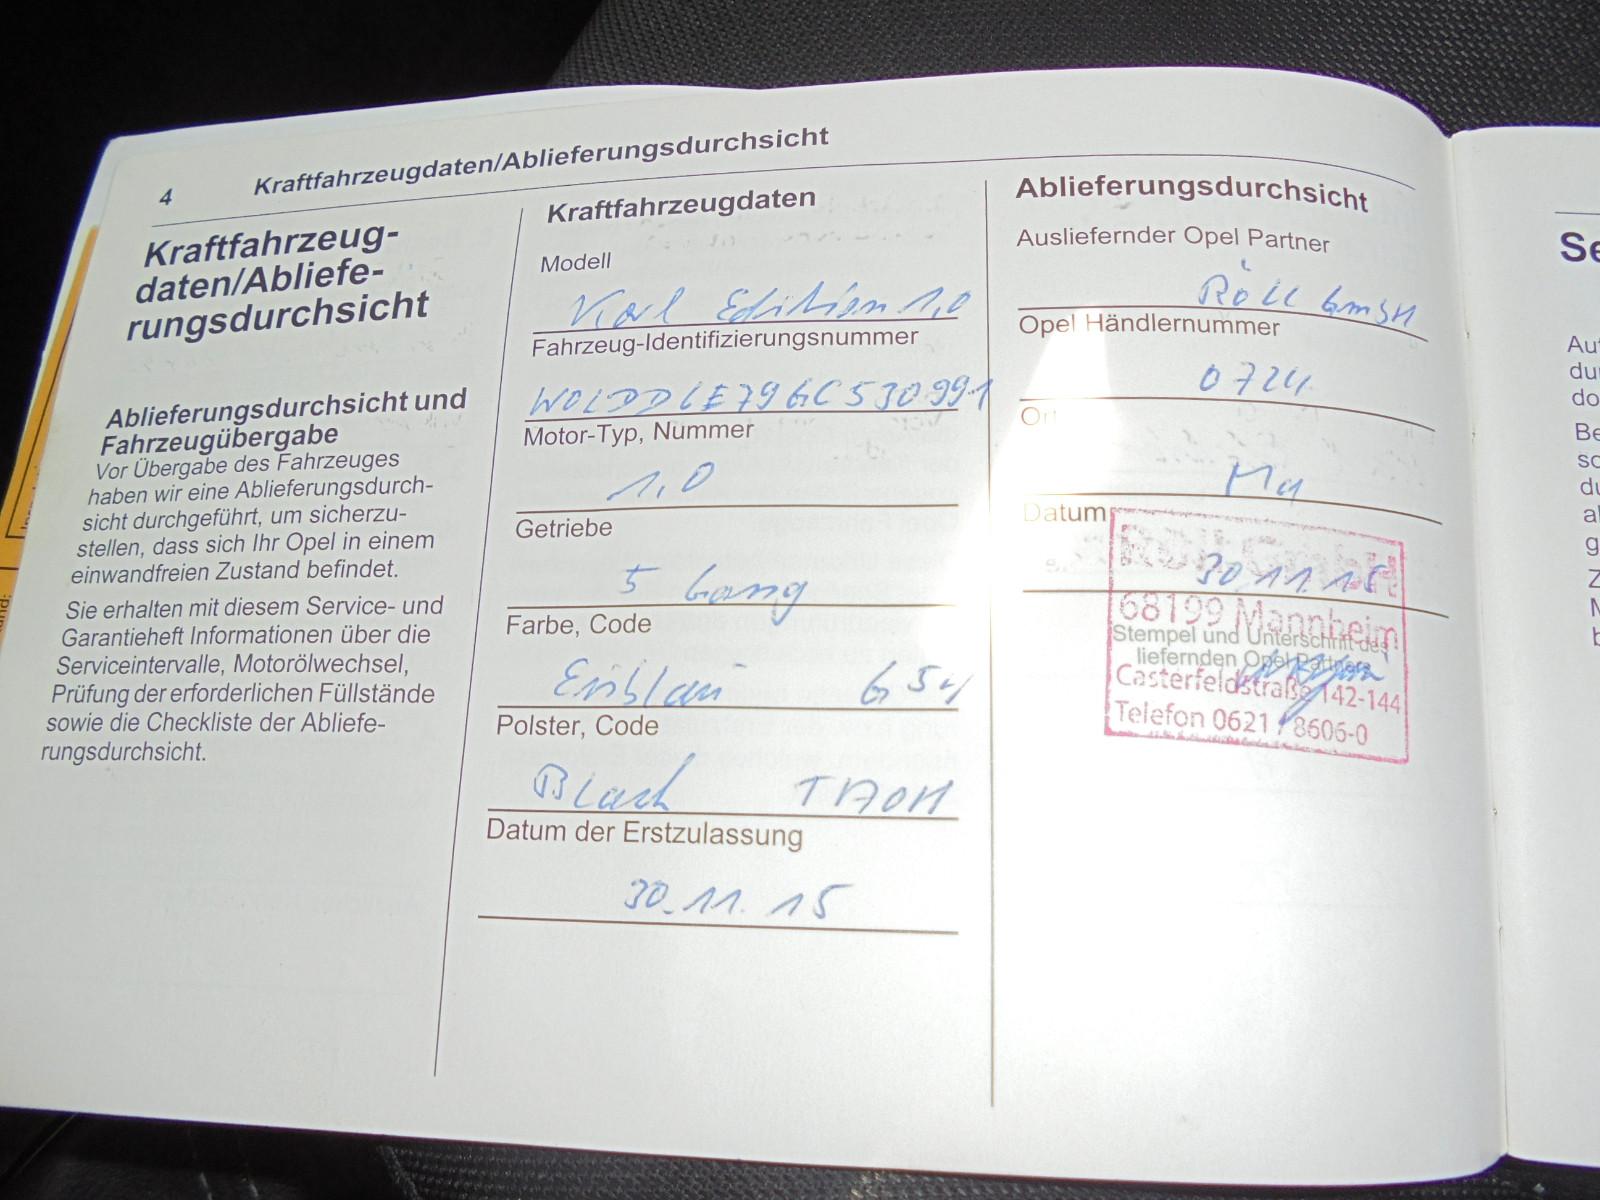 4
Kraftfahrzeugdaten/Ablieferungsdurchsicht
Kraftfahrzeug-
daten/Abliefe-
rungsdurchsicht
Ablieferungsdurchsicht und
Fahrzeugübergabe
Vor Übergabe des Fahrzeuges
haben wir eine Ablieferungsdurch-
sicht durchgeführt, um sicherzu-
stellen, dass sich Ihr Opel in einem
einwandfreien Zustand befindet.
Sie erhalten mit diesem Service- und
Garantieheft Informationen über die
Serviceintervalle, Motorölwechsel,
Prüfung der erforderlichen Füllstände
sowie die Checkliste der Abliefe-
rungsdurchsicht.
Kraftfahrzeugdaten
Modell
Karl Edition 1,0
Fahrzeug-Identifizierungsnummer
W0LDDLE79GC530991
Motor-Typ, Nummer
1,0
Getriebe
5 Gang
Farbe, Code
Eisblau
Polster, Code
Black
Datum der Erstzulassung
30.11.15
Ablieferungsdurchsicht
Ausliefernder Opel Partner
Röll GmbH
Opel Händlernummer
Ort
Ma
Datum
30.11.15
Röll GmbH
68199 Mannheim
Stempel und Unterschrift des
liefernden Opel Partners
Casterfeldstraße 142-144
Telefon 0621 / 8606-0
Se